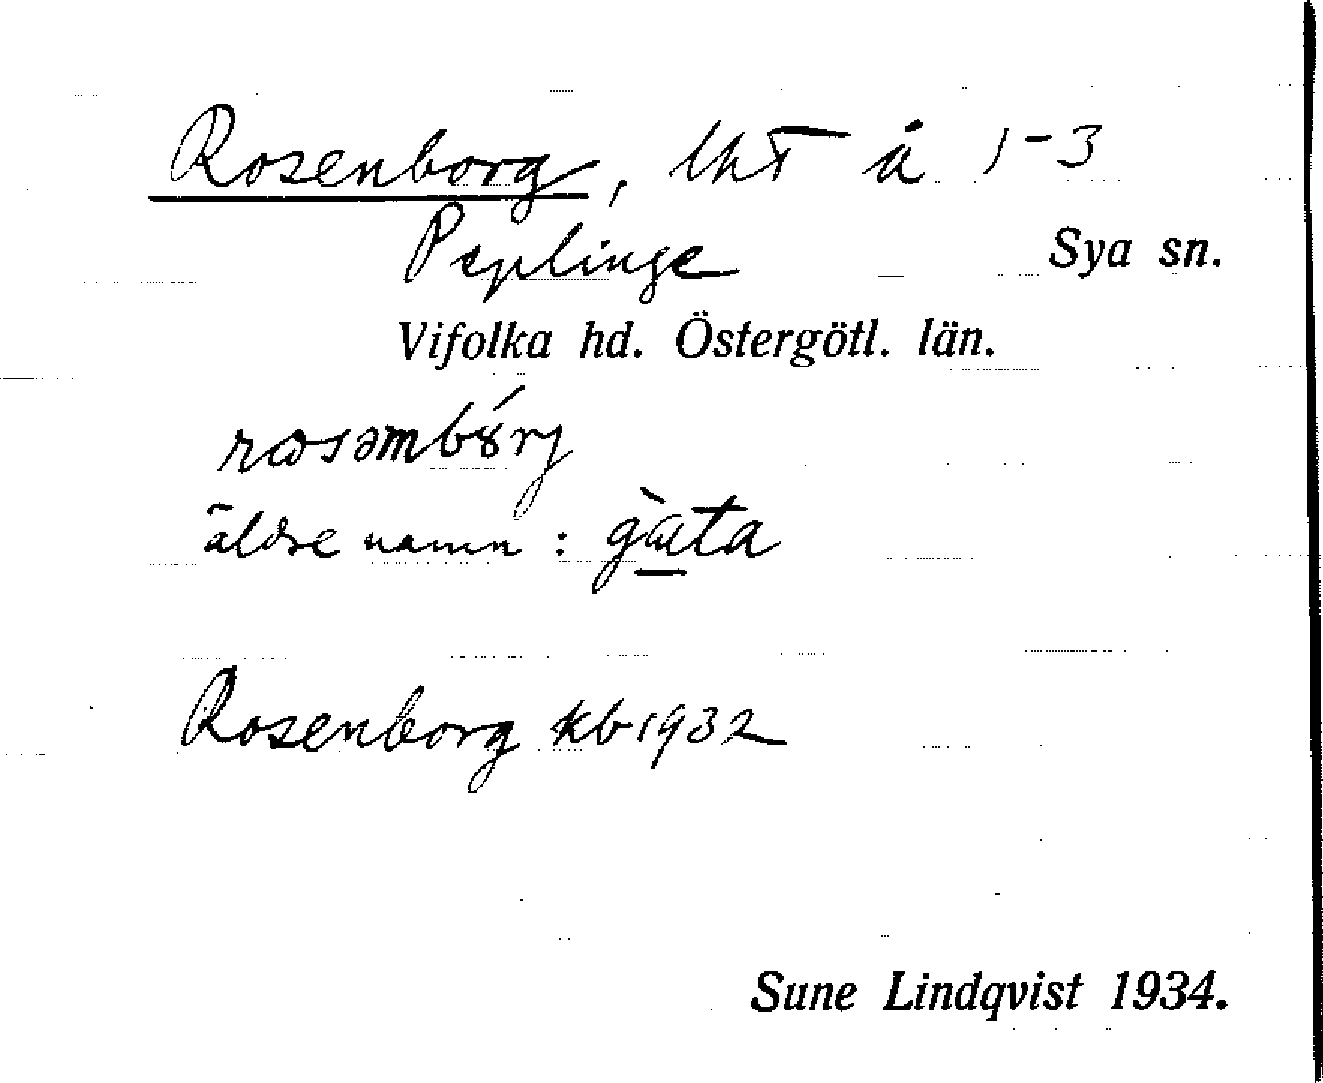 Rosenborg, lht å 1-3
Peplinge Sya sn.
Vifolka hd. Östergötl. län.
äldre namn :
Rosenborg kb 1932
Sune Lindqvist 1934.